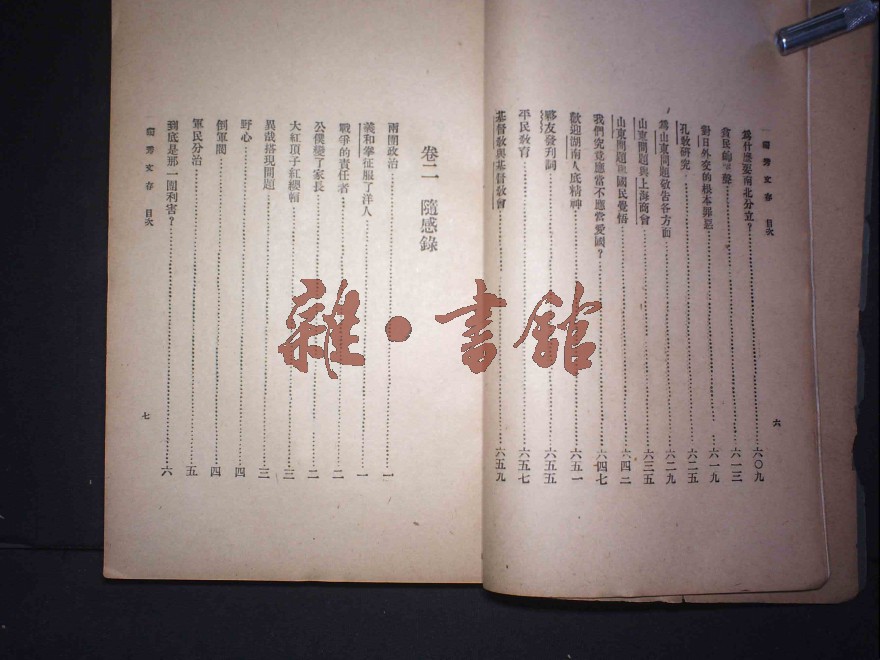 獨秀文存 目次
爲什麼要南北分立？六〇九
貧民的聲六一三
對日外交的根本罪惡六一九
孔教研究六二五
爲山東問題敬告各方面六二九
山東問題與上海商會六三五
山東問題與國民覺悟六四二
我們究竟應當不應當愛國？六四七
歡迎湖南人底精神六五一
夥友發刊詞六五五
平民教育六五七
基督教與基督教會六五九
六
卷二 隨感錄
兩團政治一
義和拳征服了洋人一
戰爭的責任者二
公僕變了家長二
大紅頂子紅纓帽三
異哉搭現問題三
野心四
倒軍閥四
軍民分治五
到底是那一團利害？六
獨秀文存 目次
七
雜·書館